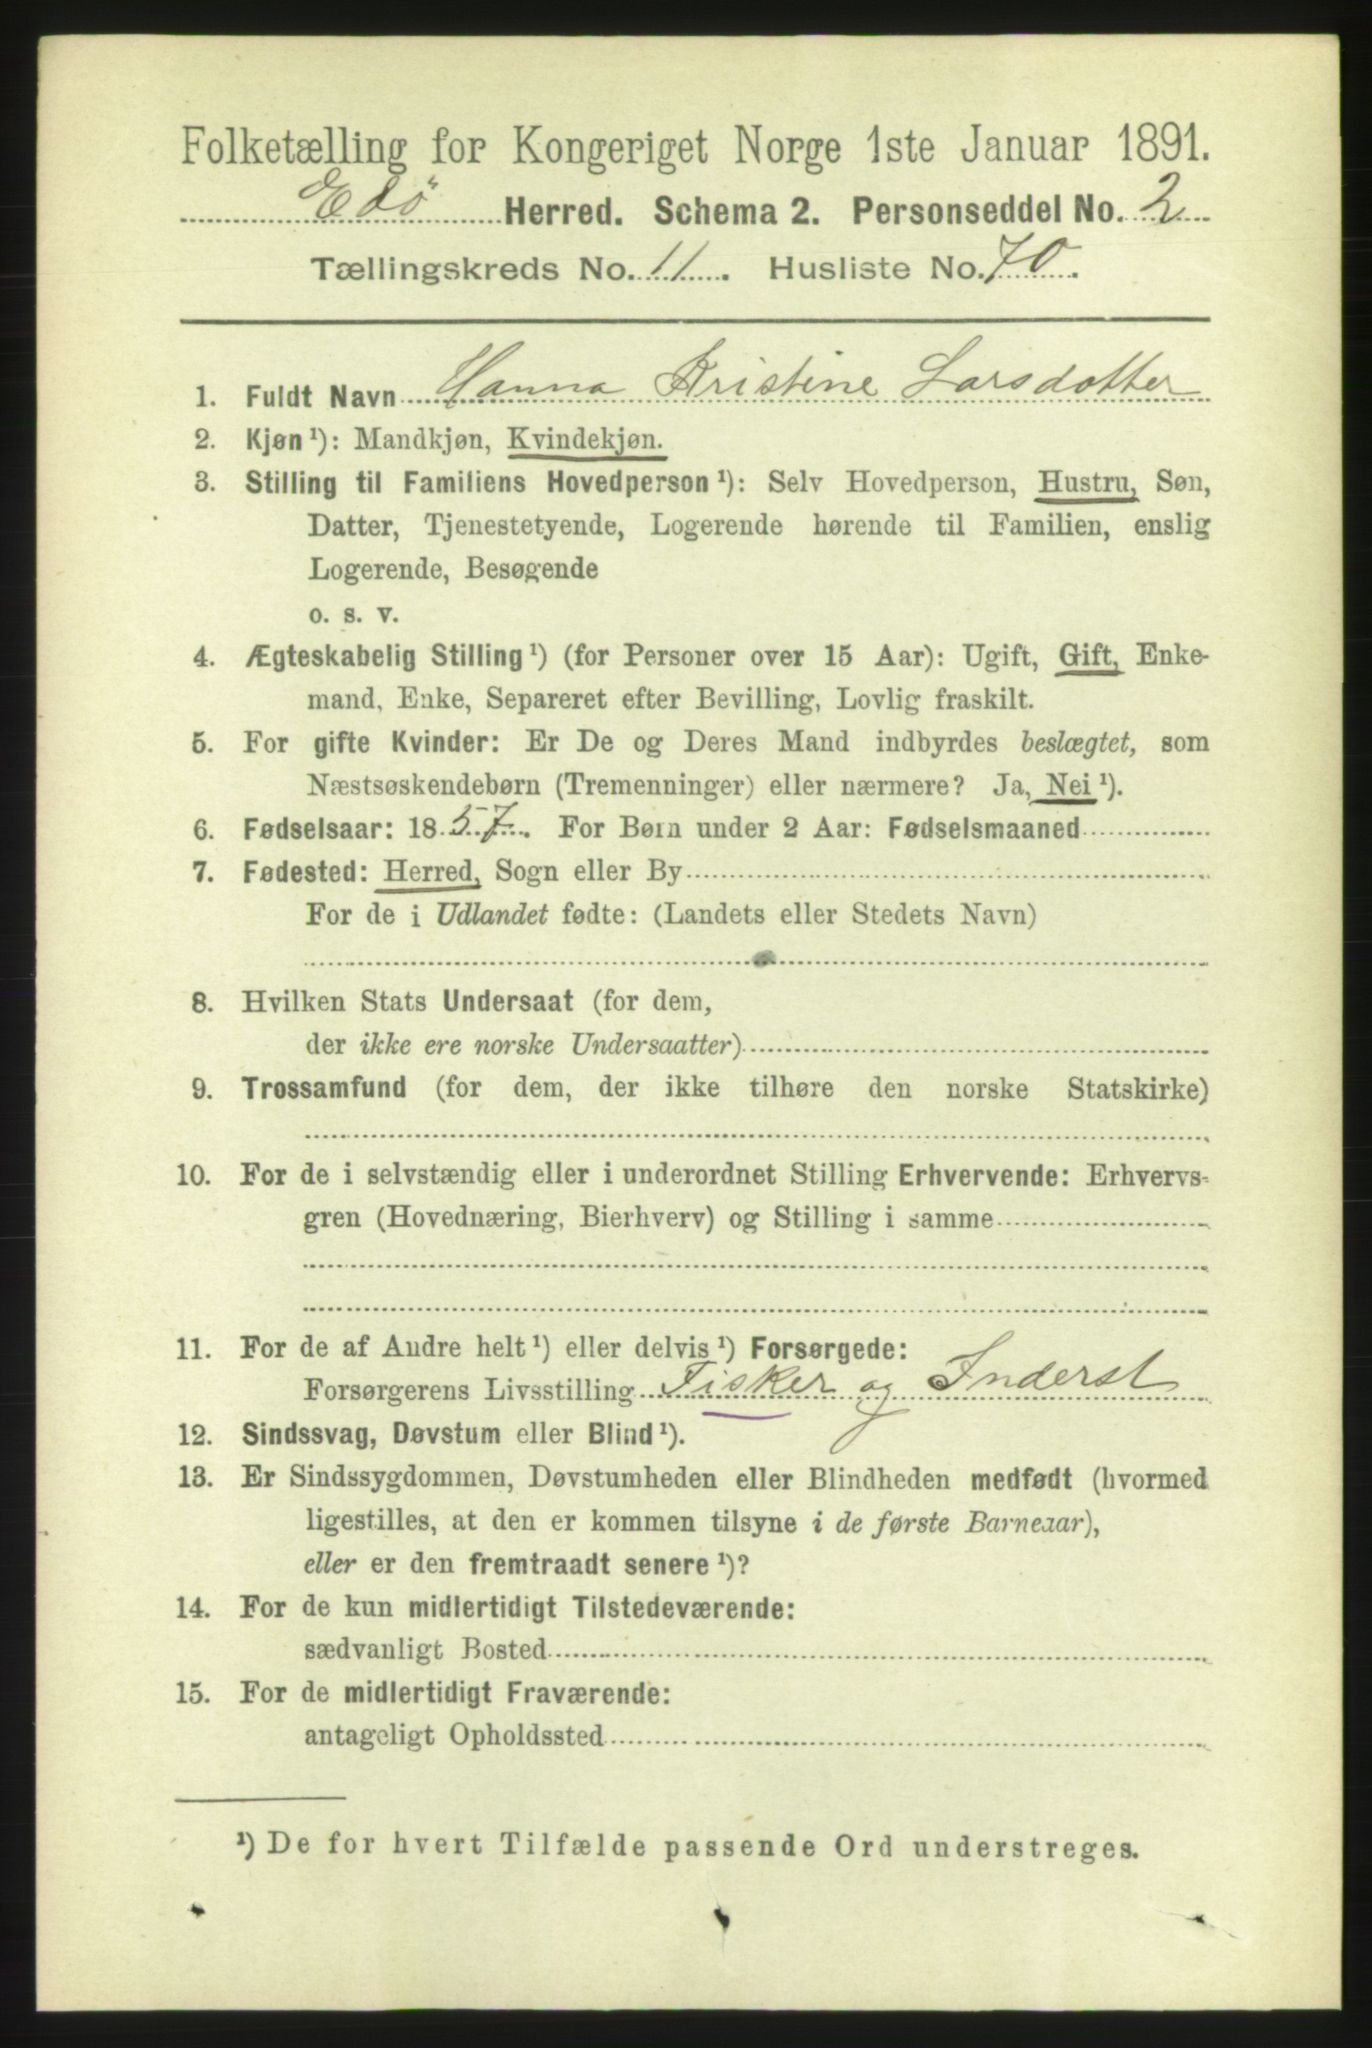 Folketælling for Kongeriget Norge 1ste Januar 1891.
Edö Herred. Schema 2. Personseddel No. 2
Tællingskreds No. 11. Husliste No. 70.
1. Fuldt Navn Hanna Kristine Larsdatter
2. Kjøn¹): Mandkjøn, Kvindekjøn.
3. Stilling til Familiens Hovedperson¹): Selv Hovedperson, Hustru, Søn,
Datter, Tjenestetyende, Logerende hørende til Familien, enslig
Logerende, Besøgende
o. s. v.
4. Ægteskabelig Stilling¹) (for Personer over 15 Aar): Ugift, Gift, Enke-
mand, Enke, Separeret efter Bevilling, Lovlig fraskilt.
5. For gifte Kvinder: Er De og Deres Mand indbyrdes beslægtet, som
Næstsøskendebørn (Tremenninger) eller nærmere? Ja, Nei¹).
6. Fødselsaar: 1857. For Børn under 2 Aar: Fødselsmaaned
7. Fødested: Herred, Sogn eller By
For de i Udlandet fødte: (Landets eller Stedets Navn)
8. Hvilken Stats Undersaat (for dem,
der ikke ere norske Undersaatter)
9. Trossamfund (for dem, der ikke tilhøre den norske Statskirke)
10. For de i selvstændig eller i underordnet Stilling Erhvervende: Erhvervs-
gren (Hovednæring, Bierhverv) og Stilling i samme
11. For de af Andre helt¹) eller delvis¹) Forsørgede:
Forsørgerens Livsstilling Fisker og Inderst
12. Sindssvag, Døvstum eller Blind¹).
13. Er Sindssygdommen, Døvstumheden eller Blindheden medfødt (hvormed
ligestilles, at den er kommen tilsyne i de første Barneaar),
eller er den fremtraadt senere¹)?
14. For de kun midlertidigt Tilstedeværende:
sædvanligt Bosted
15. For de midlertidigt Fraværende:
antageligt Opholdssted
¹) De for hvert Tilfælde passende Ord understreges.